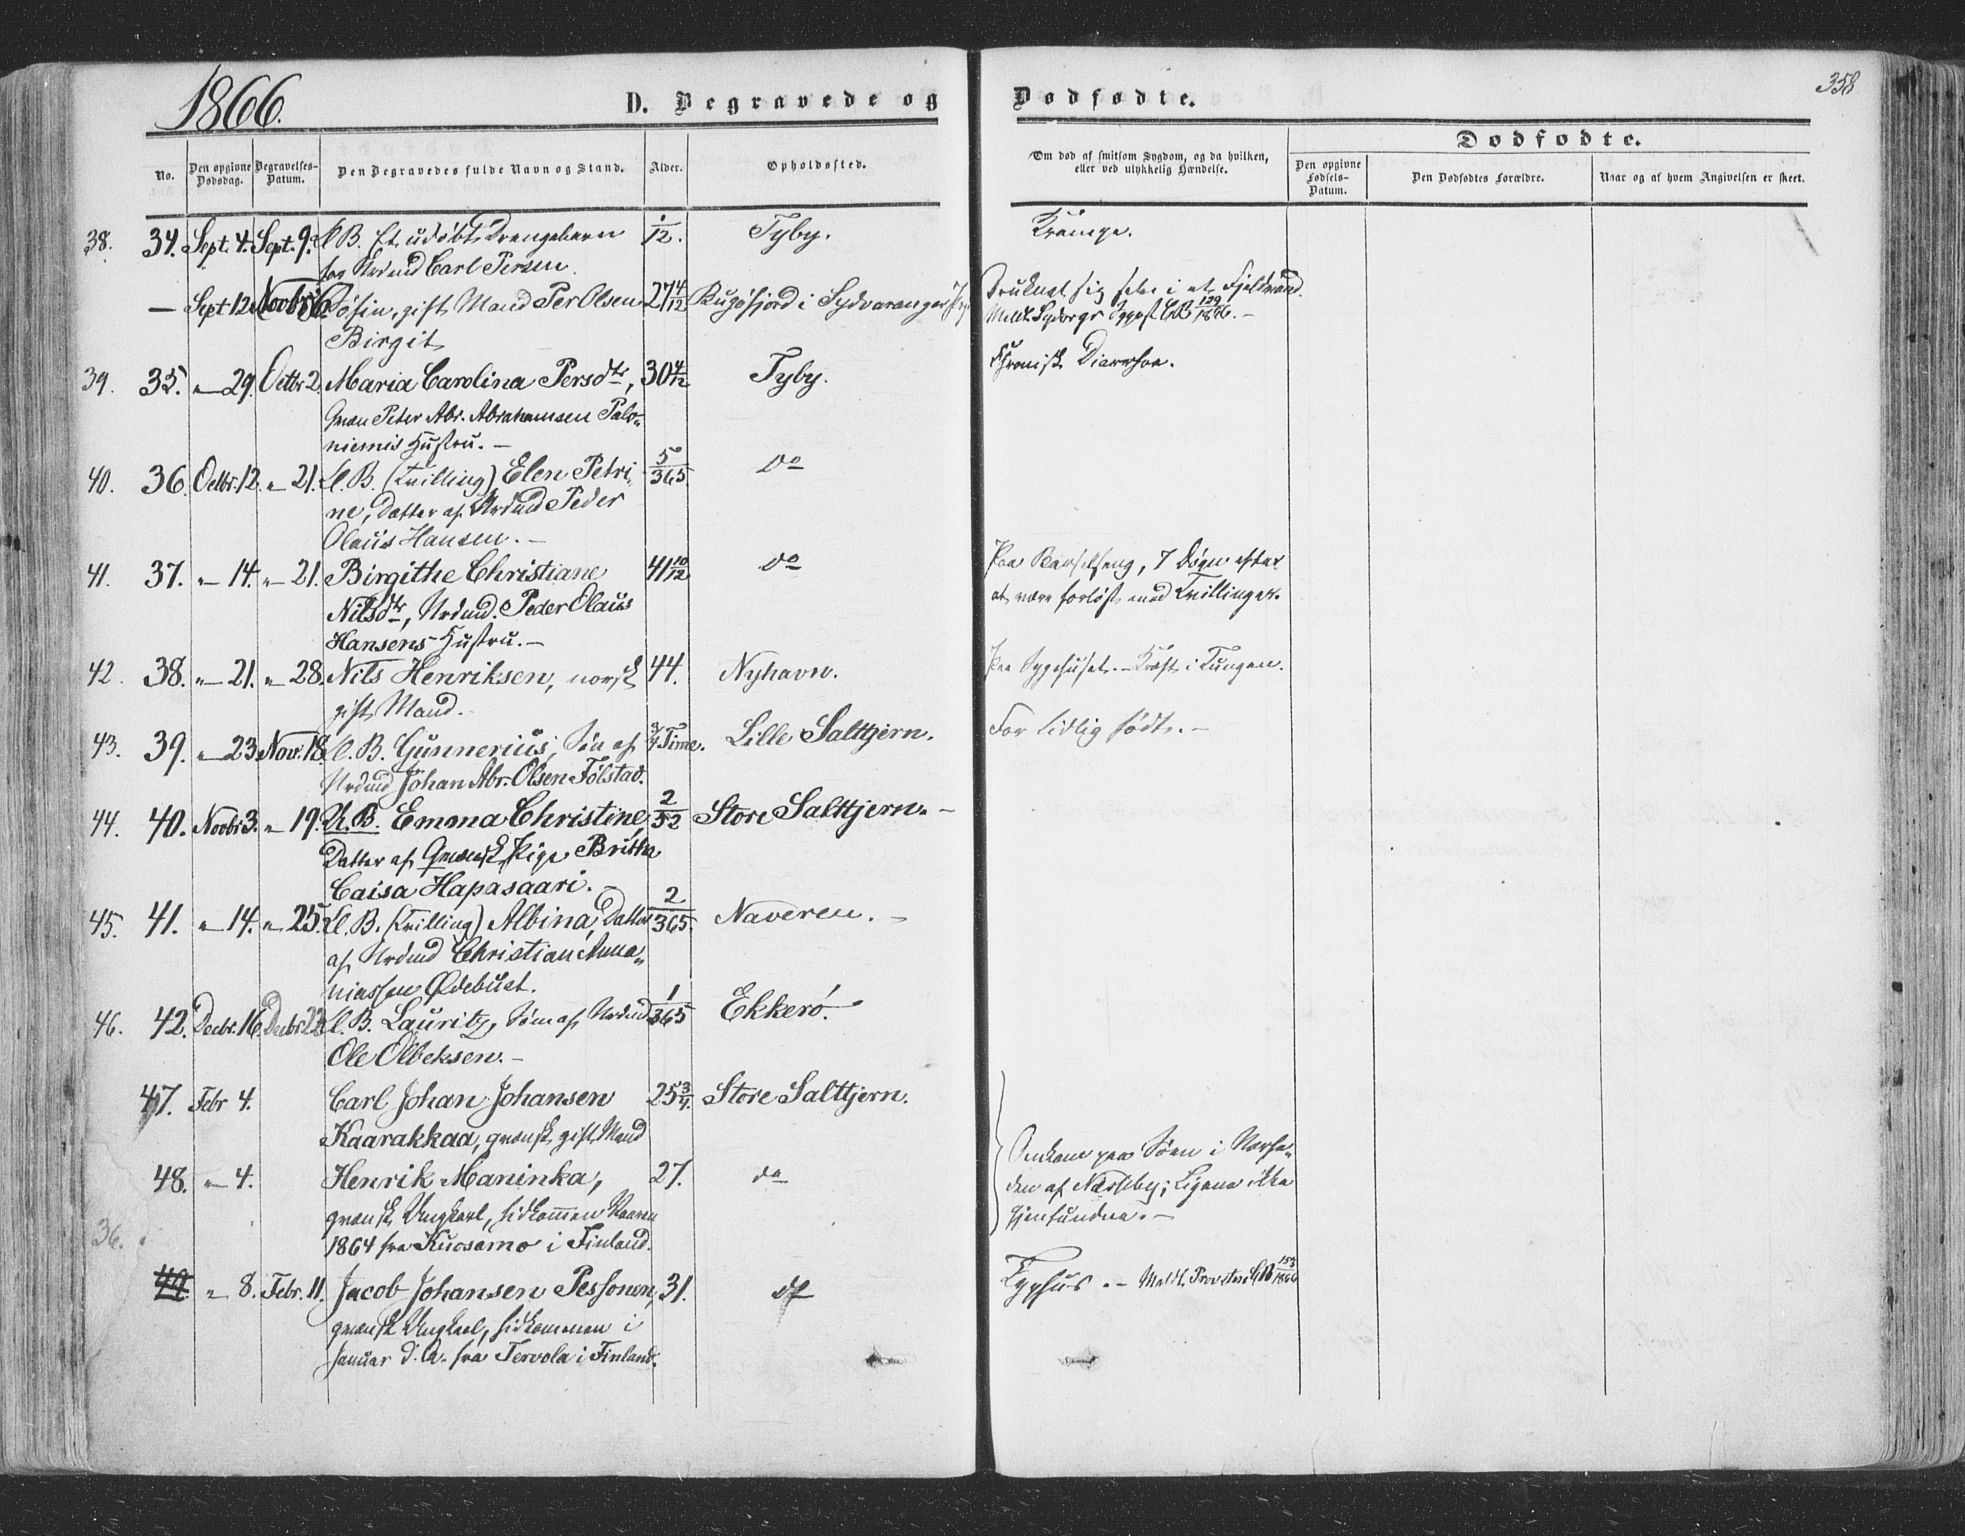 1866.
D. Begravede og
Dødfødte.
358
Dødfødte.
No.
Den opgivne Dødsdag.
Begravelses-Datum.
Den Begravedes fulde Navn og Stand.
Alder.
Opholdssted.
Om død af smitsom Sygdom, og da hvilken,
eller ved ulykkelig Hændelse.
Den opgivne Fødsels-Datum.
Den Dødfødtes Forældre.
Naar og af hvem Angivelsen er skeet.
38. 34. Sept. 4. Sept. 9. Æ. B. Et udøbt Drengebarn 1/12. Tyby. Krampe.
for Nrdmd Carl Persen.
— Sept 12. Novbr Søfin, gift Mand Per Olsen 27 4/12 Bugøfjord i Sydvaranger Druknet sig selv i et Fjeldvand.
Birgit Meldt
39. 35. " 29. Octbr 2. Maria Carolina Persdtr, 30 4/12 Tyby. Chronisk Diarrhoe.
Qvæn Peter Abr. Abrahamsen Palo-
niemis Hustru. —
40. 36. Octbr. 12. " 21. Æ. B. (Tvilling) Elen Petri- 5/365 do
ne, Datter af Nrdmd Peder
Olaus Hansen. —
41. 37. " 14. " 21. Birgithe Christiane 41 10/12 do Paa Barselseng, 7 Døgn efter
Nilsdtr, Nrdmd. Peder Olaus at være forløst med Tvillinger.
Hansens Hustru. —
42. 38. " 21. " 28. Nils Henriksen, norsk 44. Nyhavn. Paa Sygehuset. — Kræft i Tungen.
gift Mand.
43. 39. " 23. Nov. 18. Æ. B. Gunnerius, Søn af 3/4 Time. Lille Salttjern. For tidlig født. —
Nrdmd Johan Abr. Olsen Følstad.
44. 40. Novbr 3. " 19. U. B. Emma Christine, 2/52 Store Salttjern. —
Datter af Qvænsk Pige Britha
Caisa Hapasaari. —
45. 41. " 14. " 25. Æ. B. (Tvilling) Albina, Datter 2/365. Naveren. —
af Nrdmd Christian Anna-
niassen Ødebust.
46. 42. Decbr. 16. Decbr. 23. Æ. B. Lauritz, Søn af Nrdmd 1/365 Ekkerö.
Ole Olbeksen. —
47. Febr 4. Carl Johan Johansen 25 3/4. Store Salttjern.
Kaarakkaa, qvænsk gift Mand
48. " 4. Henrik Maninka, 27. do Omkom paa Søen i Nærhe-
qvænsk Ungkarl, hidkommen Vaaren den af Næsseby; Ligene ikke
1864 fra Kuosamo i Finland. gjenfundne. —
36.
49. " 8. Febr. 11. Jacob Johansen Pessonen, 31. do Typhus. — Meldt 155/1866
qvænsk Ungkarl, hidkommen i
Januar d. A. fra Tervola i Finland.